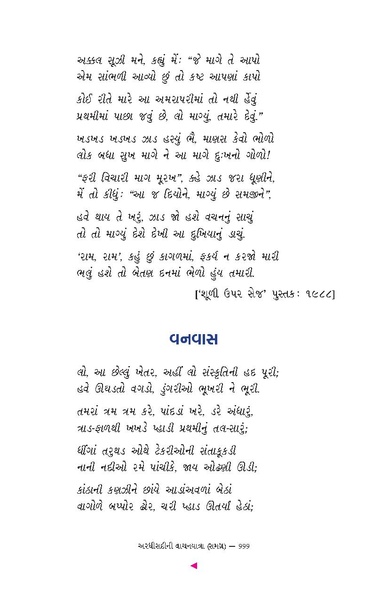 અક્કલ સૂઝી મને, કહ્યું મેં: “જે માગે તે આપો
એમ સાંભળી આવ્યો છું તો કષ્ટ આપણાં કાપો
કોઈ રીતે મારે આ અમરાપરીમાં તો નથી ર્‌હેવું
પ્રથમીમાં પાછા જવું છે, લો માગ્યું, તમારે દેવું.”
ખડખડ ખડખડ ઝાડ હસ્યું ભૈ, માણસ કેવો ભોળો
લોક બધા સુખ માગે ને આ માગે દુઃખનો ગોળો!
“ફરી વિચારી માગ મૂરખ”, ક્‌હે ઝાડ જરા ધૂણીને,
મેં તો કીધું: “આ જ દિયોને, માગ્યું છે સમજીને”,
હવે થાય તે ખરું, ઝાડ જો હશે વચનનું સાચું
તો તો માગ્યું દેશે દેખી આ દુખિયાનું ડાચું.
‘રામ, રામ’, કહું છું કાગળમાં, ફકર્ય ન કરજો મારી
ભલું હશે તો બેતણ દનમાં ભેળો હુંય તમારી.
[‘શૂળી ઉપર સેજ’ પુસ્તક: ૧૯૮૮]
વનવાસ
લો, આ છેલ્લું ખેતર, અહીં લો સંસ્કૃતિની હદ પૂરી;
હવે ઊઘડતો વગડો, ડુંગરીઓ ભૂખરી ને ભૂરી.
તમરાં ત્રમ ત્રમ કરે, પાંદડાં ખરે, ડરે અંધારું,
ત્રાડ-ફાળથી ખખડે પ્હાડી પ્રથમીનું તલ-સારું;
ધીંગાં તરુથડ ઓથે ટેકરીઓની સંતાકૂકડી
નાની નદીઓ રમે પાંચીકે, જાય ઓઢણી ઊડી;
કાંઠાની કણઝીને છાંયે આડાંઅવળાં બેઠાં
વાગોળે બપ્પોર ઢોર, ચરી પ્હાડ ઊતર્યાં હેઠાં;
અરધીસદીની વાચનયાત્રા (સમગ્ર) — 999